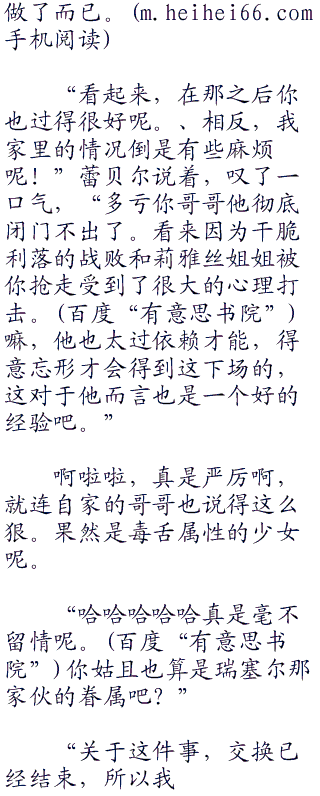 做了而已。(m.heihei66.com
手机阅读)
“看起来，在那之后你
也过得很好呢。、相反，我
家里的情况倒是有些麻烦
呢！”蕾贝尔说着，叹了一
口气，“多亏你哥哥他彻底
闭门不出了。看来因为干脆
利落的战败和莉雅丝姐姐被
你抢走受到了很大的心理打
击。(百度“有意思书院”)
嘛，他也太过依赖才能，得
意忘形才会得到这下场的，
这对于他而言也是一个好的
经验吧。”
啊啦啦，真是严厉啊，
就连自家的哥哥也说得这么
狠。果然是毒舌属性的少女
呢。
“哈哈哈哈哈真是毫不
留情呢。(百度“有意思书
院”)你姑且也算是瑞塞尔那
家伙的眷属吧？”
“关于这件事，交换已
经结束，所以我